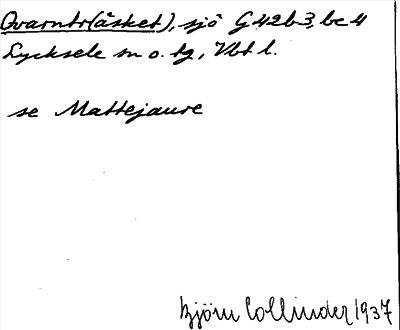 Qvarntr(äsket), sjö G 42b3, bc4
Lycksele sn o. tg, Vbt l.
se Mattejaure
Björn Collinder 1937